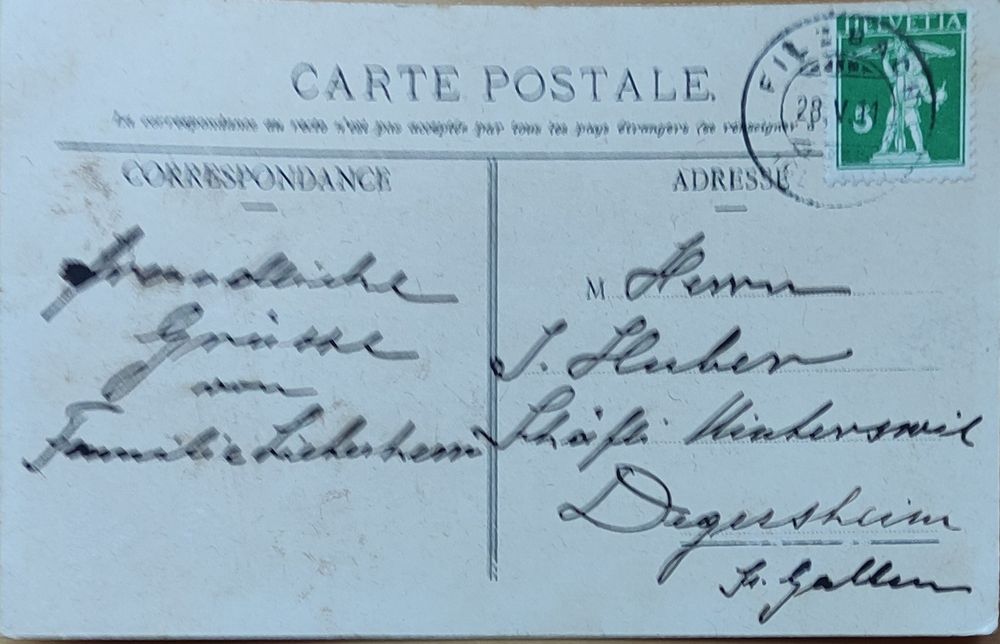 CARTE POSTALE.
La correspondance au recto n'est pas acceptée par tous les pays étrangers (se renseigner
HELVETIA
5
28.V.11
CORRESPONDANCE
ADRESSE
Freundliche
Grüsse
von
Familie
M Herrn
J. Huber
Schäfli Winterswil
Degersheim
St. Gallen